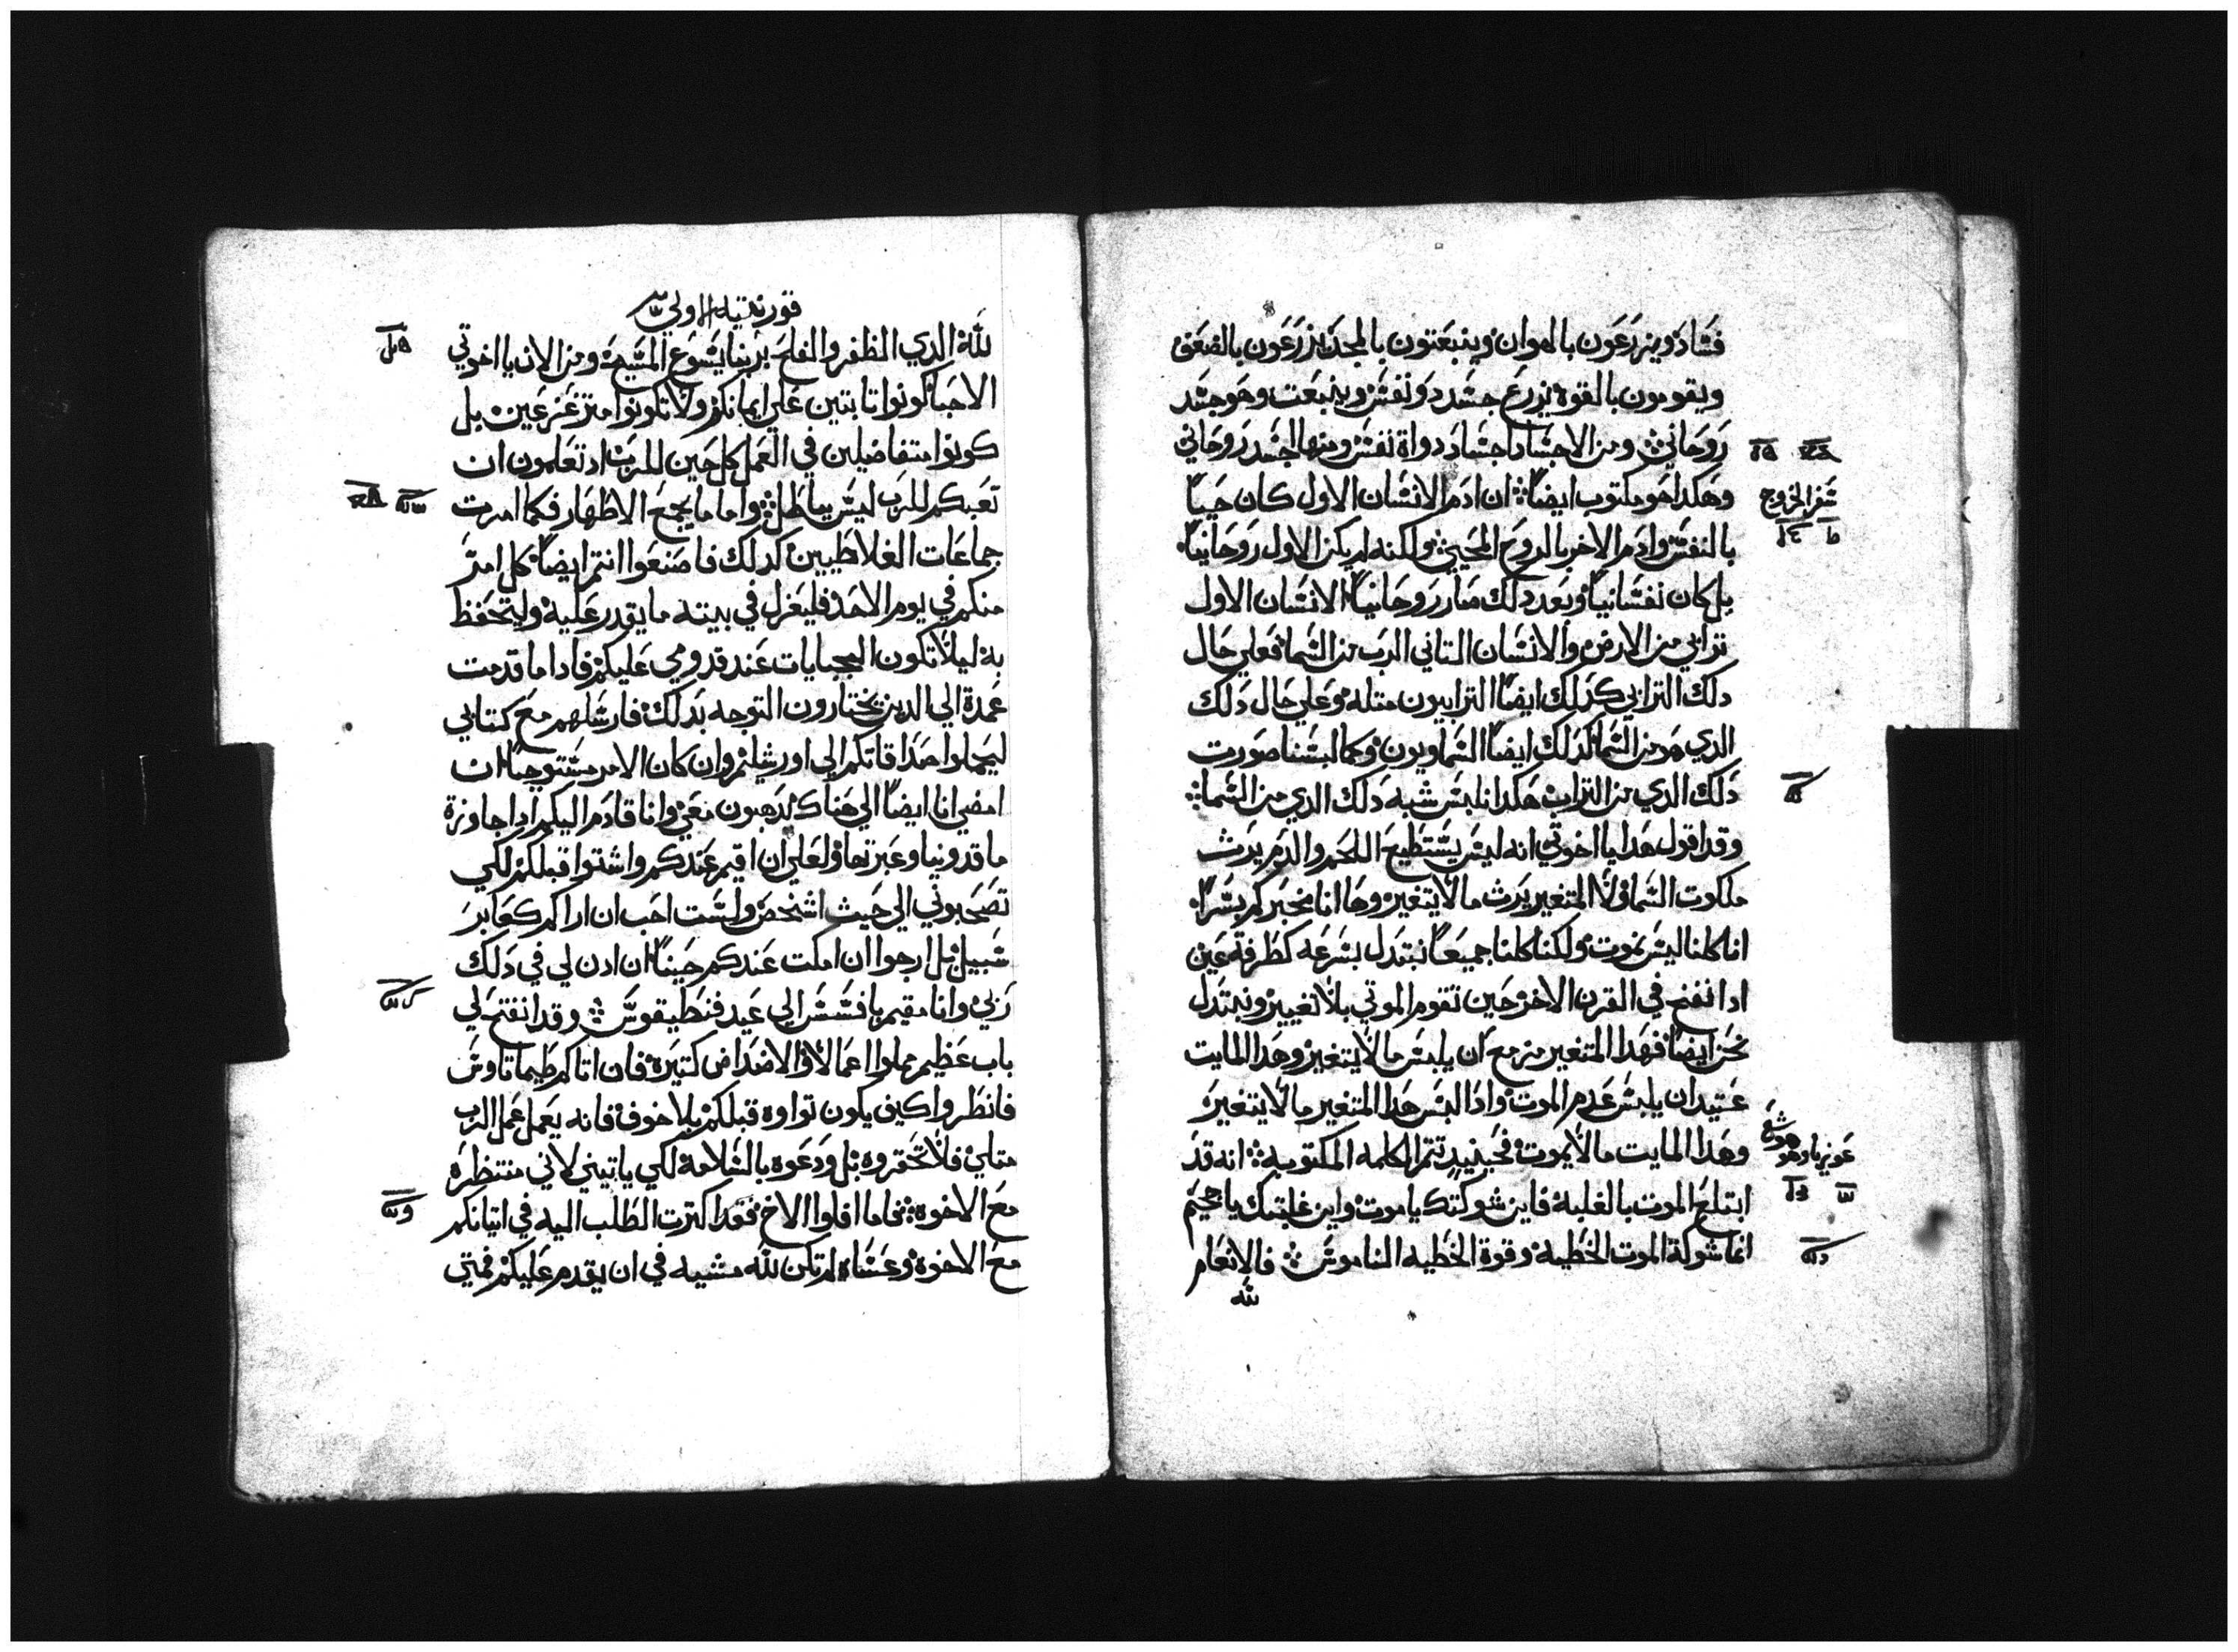 فساد ويزرعون بالهوان وينبعتون بالمجد يزرعون بالضعف
ويقومون بالقوة يزرع جسد دو نفس وينبعت وهو جسد
روحاني ومن الاجساد اجساد دواة نفس ومنها جسد روحاني
وهكدا هو مكتوب ايضاً ان ادم الانسان الاول كان حياً
سفر الخروج
بالنفس وادم الاخر بالروح المحيي ولكنه لم يكن الاول روحانياً
بل كان نفسانياً وبعد دلك صار روحانياً الانسان الاول
ترابي من الارض والانسان التاني الرب من السما فعلي حال
دلك الترابي كدلك ايضاً الترابيون متله وعلي حال دلك
الدي هو من السما كدلك ايضاً السماويون وكما لبسنا صورت
دلك الدي من التراب هكدا نلبس شبه دلك الدي من السما
وقد اقول هدا يا اخوتي انه ليس يستطيع اللحم والدم يرث
ملكوت السما ولا المتغير يرث ما لا يتغير وها انا مخبركم بسراً
انا كلنا ليس نموت ولكنا كلنا جميعاً نبتدل بسرعه كطرفة عين
ادا نفخ في القرن الاخر حين تقوم الموتي بلا تغيير ونبتدل
نحن ايضاً فهدا المتغير مزمع ان يلبس ما لا يتغير وهدا المايت
عتيد ان يلبس عدم الموت وادا لبس هدا المتغير ما لا يتغير
وهدا المايت ما لا يموت فحينيدٍ تتم الكلمه المكتوبه انه قد
ابتلع الموت بالغلبة فاين شوكتك يا موت واين غلبتك يا جحيم
انما شوكة الموت الخطية وقوة الخطيه الناموس فالانعام
لله
قورنتيه الاولي
لله الدي الظفر والفلح بربنا يسوع المسيح ومن الان يا اخوتي
الاحبا كونوا تابتين علي ايمانكم ولا تكونوا متزعزعين بل
كونوا متفاضلين في العمل كل حين للرب اد تعلمون ان
تعبكم للرب ليس بباطل واما ما يجمع الاطهار فكما امرت
جماعات الغلاطيين كدلك فاصنعوا انتم ايضاً كل امر
منكم في يوم الاحد فليعزل في بيته ما يقدر عليه وليتحفظ
به ليلا تكون الجبايات عند قدومي عليكم فادا ما قدمت
عمدة الي الدين يختارون التوجه بدلك فارسلهم مع كتابي
ليحملوا صداقاتكم الي اورشليم وان كان الامر مستوجباً ان
امضي انا ايضاً الي هناك يدهبون معي وانا قادم اليكم ادا جاوزة
ماقدونيا وعبرتها ولعلي ان اقيم عندكم واشتوا قبلكم لكي
تصحبوني الي حيث اشخص ولست احب ان اراكم كعابر
سبيل بل ارجوا ان امكت عندكم حيناً ان ادن لي في دلك
ربي وانا مقيم بافسس الي عيد فنطيقوس وقد انفتح لي
باب عظيم مملوا اعمالاً والاضداض كتيرة فان اتاكم طيماتاوس
فانظروا كيف يكون تواوه قبلكم بلا خوف فانه يعمل عمل الرب
متلي فلا تحقروه بل ودعوه بالسلامة لكي ياتيني لاني منتظره
مع الاخوه فاما افلوا الاخ فقد اكترت الطلب اليه في اتيانكم
مع الاخوة وعساه لم تكن لله مشيه في ان يقدم عليكم فمتي